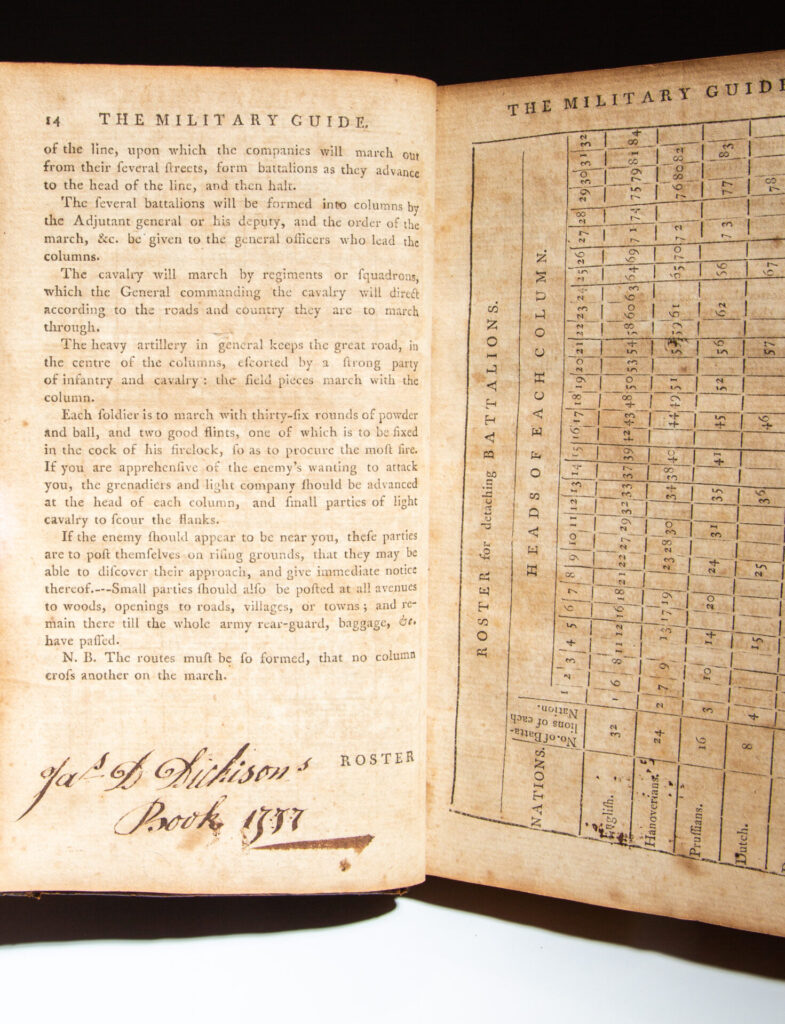 14 THE MILITARY GUIDE.
of the line, upon which the companies will march out
from their ſeveral ſtreets, form battalions as they advance
to the head of the line, and then halt.
The ſeveral battalions will be formed into columns by
the Adjutant general or his deputy, and the order of the
march, &c. be given to the general officers who lead the
columns.
The cavalry will march by regiments or ſquadrons,
which the General commanding the cavalry will direct
according to the roads and country they are to march
through.
The heavy artillery in general keeps the great road, in
the centre of the columns, eſcorted by a ſtrong party
of infantry and cavalry : the field pieces march with the
column.
Each ſoldier is to march with thirty-ſix rounds of powder
and ball, and two good flints, one of which is to be fixed
in the cock of his firelock, ſo as to procure the moſt fire.
If you are apprehenſive of the enemy's wanting to attack
you, the grenadiers and light company ſhould be advanced
at the head of each column, and ſmall parties of light
cavalry to ſcour the flanks.
If the enemy ſhould appear to be near you, theſe parties
are to poſt themſelves on riſing grounds, that they may be
able to diſcover their approach, and give immediate notice
thereof.---Small parties ſhould alſo be poſted at all avenues
to woods, openings to roads, villages, or towns ; and re-
main there till the whole army rear-guard, baggage, &c.
have paſſed.
N. B. The routes muſt be ſo formed, that no column
croſs another on the march.
ROSTER
Jas D Dickisons
Book
THE MILITARY GUIDE
ROSTER for detaching BATTALIONS.
HEADS OF EACH COLUMN.
NATIONS.
No. of Batta-
lions of each
Nation.
1 2 3 4 5 6 7 8 9 10 11 12 13 14 15 16 17 18 19 20 21 22 23 24 25 26 27 28 29 30 31 32
Engliſh. 32 1 6 8 11 12 16 18 21 22 27 29 32 33 37 39 42 43 48 50 53 54 58 60 63 64 69 71 74 75 79 81 84
Hanoverians. 24 2 7 9 13 17 19 23 28 30 34 38 40 44 49 51 55 59 61 65 70 72 76 80 82
Pruſſians. 16 3 10 14 20 24 31 35 41 45 52 56 62 56 73 77 83
Dutch. 8 4 15 25 36 46 57 67 78